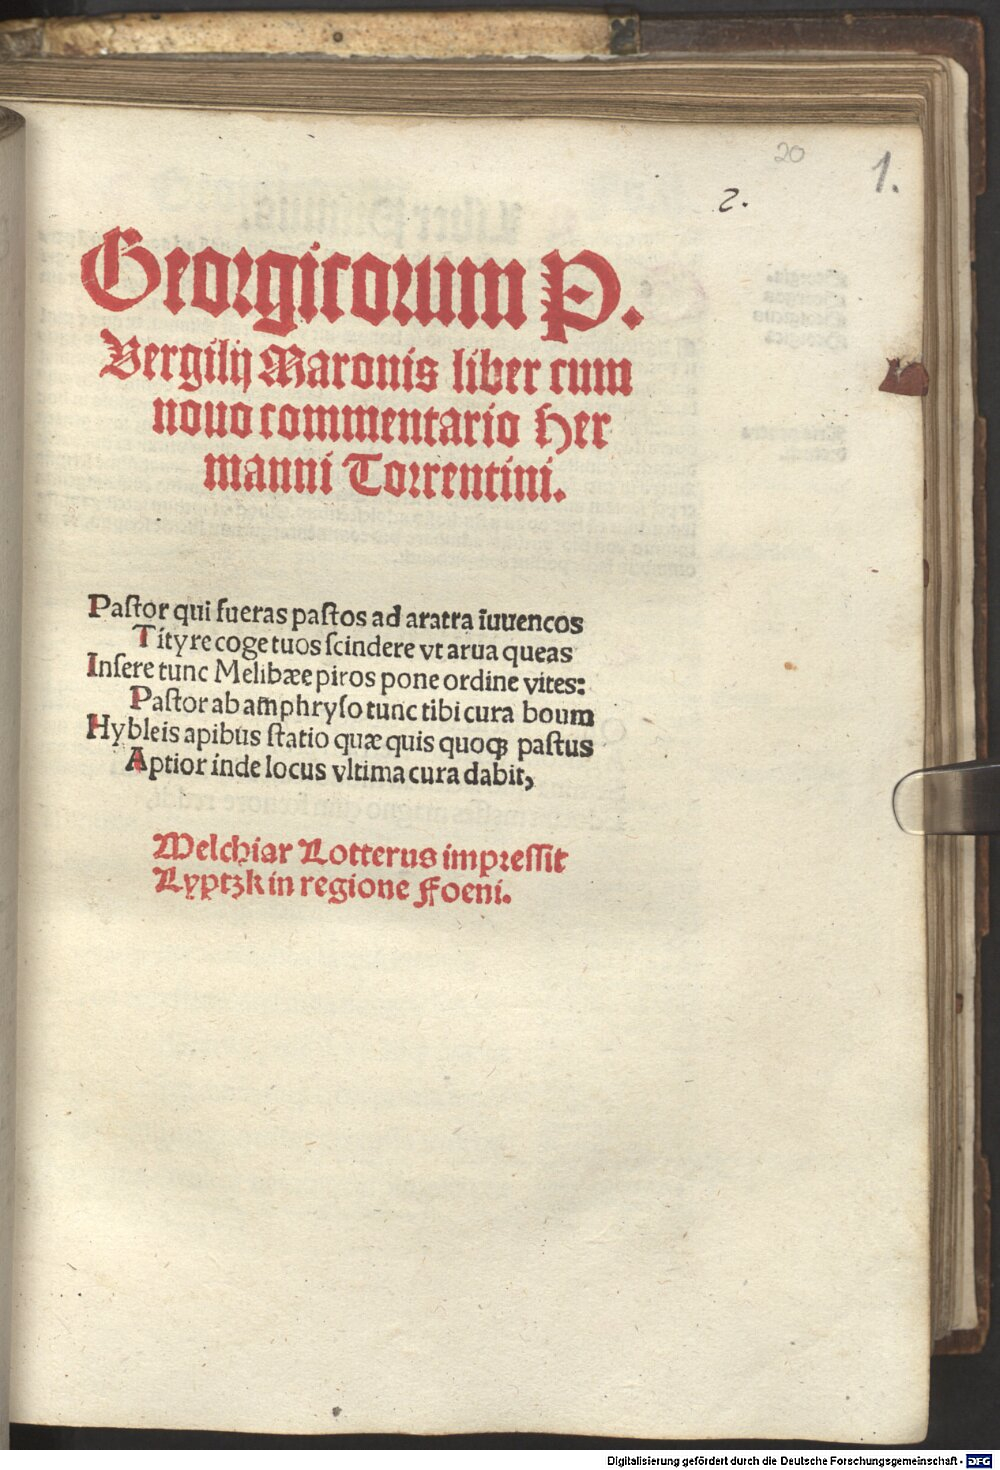 20
1.
2.
Georgicorum P.
Vergilij Maronis liber cum
nouo commentario Her
manni Torrentini.
Paſtor qui fueras paſtos ad aratra iuuencos
Tityre coge tuos ſcindere vt arua queas
Inſere tunc Melibæe piros pone ordine vites:
Paſtor ab amphryſo tunc tibi cura boum
Hybleis apibus ſtatio quæ quis quoqꝫ paſtus
Aptior inde locus vltima cura dabit,
Melchiar Lotterus impreſſit
Lyptzk in regione Foeni.
Digitalisierung gefördert durch die Deutsche Forschungsgemeinschaft - DFG